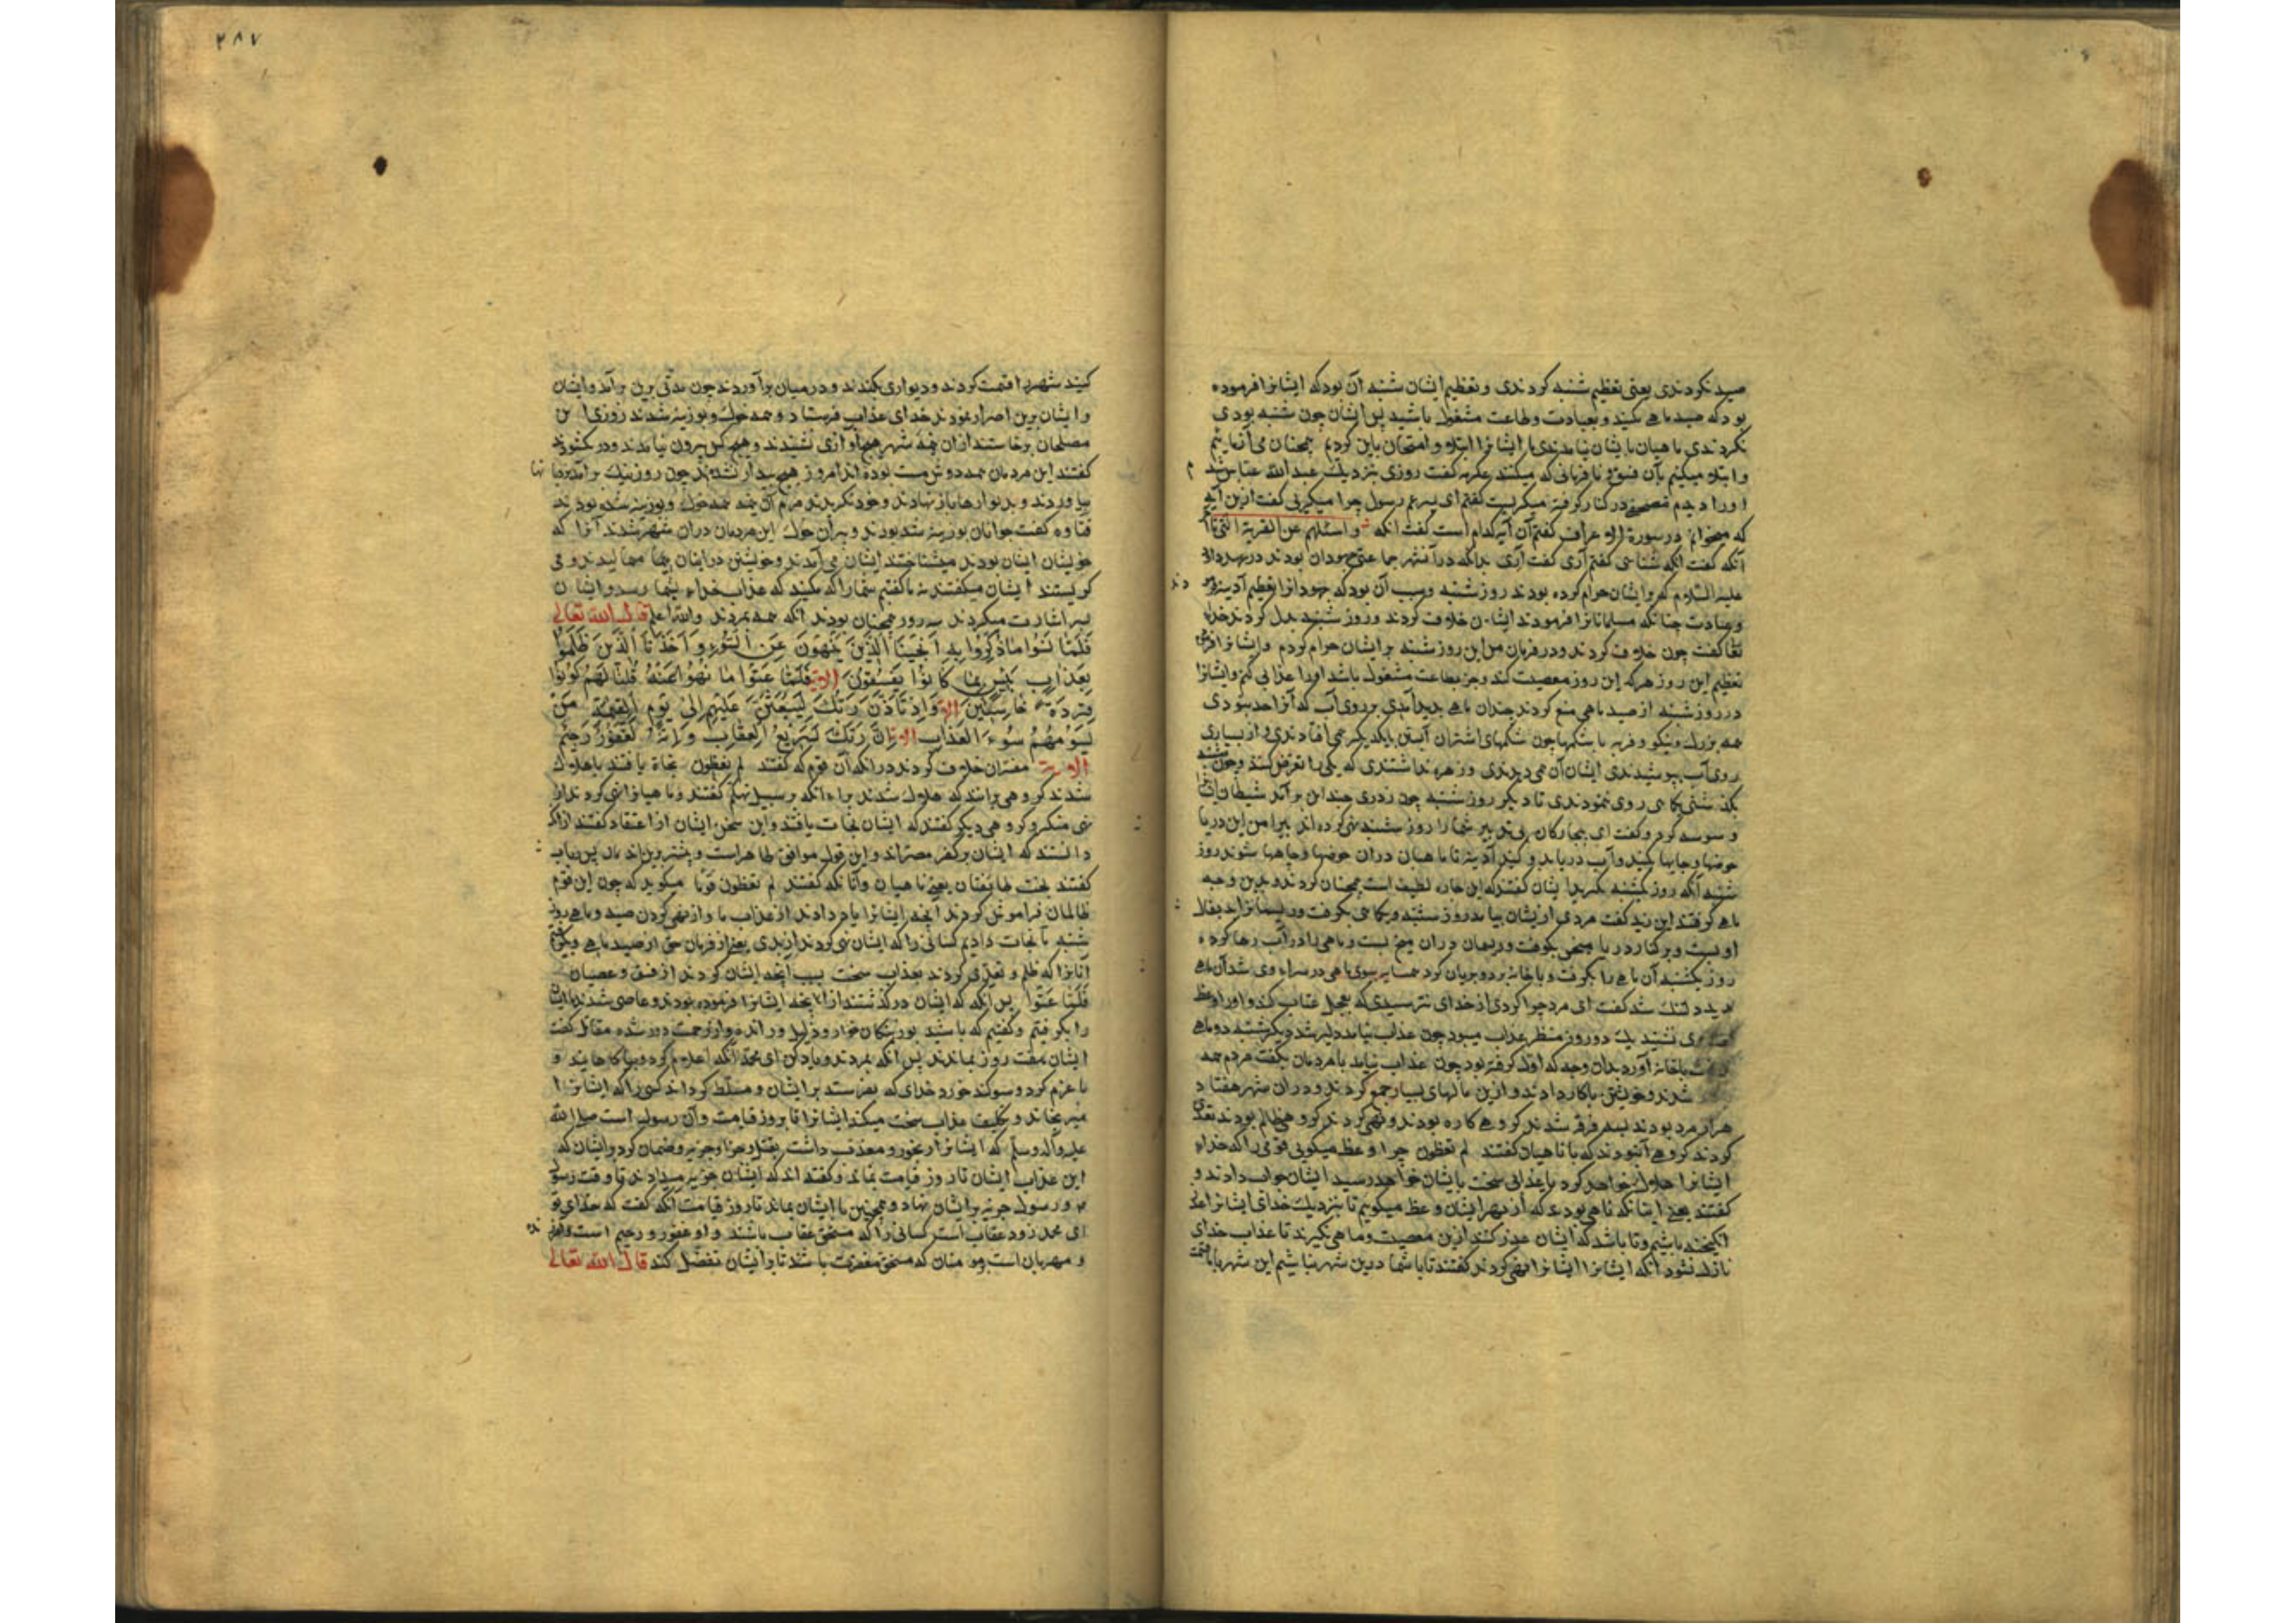 صید نکردندی یعنی تعظیم شنبه کردندی و تعظیم ایشان شنبه آن بود که ایشانرا فرموده
بود که صید ماهی مکنید و بعبادت و طاعت مشغول باشید پس ایشان چون شنبه بودی
نکردندی ماهیان بایشان نیامدندی ما ایشانرا ابتلا و امتحان باین کردیم همچنان می آزمائیم
و ابتلا میکنیم بآن فسق و نافرمانی که میکنند عکرمه گفت روزی بنزدیک عبد الله عباس شدم
اورا دیدم مصحفی در کنار گرفته میگریست گفتم ای پسر عم رسول چرا میگریی گفت ازین آیه
که میخوانم در سورة الاعراف گفتم آن آیه کدام است گفت آنکه و اسئلهم عن القریة التی
آنکه گفت ایله شناسی گفتم آری گفت بدانکه در آنشهر جماعتی جهودان بودند در عهد داود
علیه السلام که بر ایشان حرام کرده بودند روز شنبه و سبب آن بود که جهودانرا تعظیم آدینه
و عبادت چنانکه مسلمانانرا فرمودند ایشان خلاف کردند و روز شنبه بدل کردند خدای
تعالی گفت چون خلاف کردند در فرمان من این روز شنبه بر ایشان حرام کردم و ایشانرا
تعظیم این روز هر که این روز معصیت کند و جز بطاعت مشغول باشد اورا عذابی کنم و ایشانرا
در روز شنبه از صید ماهی منع کردند چندان ماهی پدید آمدی بر روی آب که آنرا حد نبودی
همه بزرگ و نیکو و فربه با شکمها چون شکمهای اشتران آبستن با یکدیگر می افتادندی و از بسیاری
روی آب بپوشیدندی ایشان آن می دیدندی و زهره نداشتندی که یکی را تعرض کنند و چون شنبه
بگذشتی یکا می روی ننمودندی تا دیگر روز شنبه چون روزی چند برین بر آمد شیطان ایشانرا
وسوسه کرد و گفت ای بیچارگان بی تدبیر شما را روز شنبه نهی کرده اند پیرامن این دریا
حوضها و جایها بکنید و آب دریا بدو کنید آدینه تا ماهیان دران حوضها و چاهها شوند روز
شنبه آنکه روز یکشنبه بگیرید ایشان گفتند که این چاره لطیف است همچنان کردند و بدین وجه
ماهی گرفتند ابن زید گفت مردی از ایشان بیامد روز شنبه و یکا می بگرفت و ریسمانی بر دنبال
او بست و بر کنار دریا میخی بکوفت و ریسمان دران میخ بست و ماهی را در آب رها کرد
روز یکشنبه آن ماهی را بگرفت و با خانه برد و بریان کرد همسایه بوی ماهی در سراء وی شد آن ماهی
بدید دلتنگ شد گفت ای مرد چرا کردی از خدای نترسیدی که بعجل عتاب کند و اورا وعظ
نشنید یک دو روز منتظر عذاب میبود چون عذاب نیامد دلیر شد دیگر شنبه دو ماهی
بگرفت با خانه آورد بدان وجه که اول گرفته بود چون عذاب نیامد با مردمان بگفت مردم همه
شدند و خویشتن باکار دادند و ازین مالهای بسیار جمع کردند و در آن شهر هفتاد
هزار مرد بودند بسه فرقه شدند گروهی کاره بودند و نهی کردند و گروهی ظالم بودند تعدی
کردند گروهی آن بودند که با ناهیان گفتند لم تعظون چرا وعظ میگویی قومی را که خداء
ایشانرا هلاک خواهد کرد یا عذابی سخت بایشان خواهد رسید ایشان جواب دادند و
گفتند یعنی اینانکه ناهی بودند که از بهر ایشان وعظ میگوییم تا بنزدیک خدای ایشانرا عذر
انگیخته باشیم و تا باشد که ایشان حذر کنند ازین معصیت و ماهی نگیرند تا عذاب خدای
نازل نشود آنکه ایشانرا نهی کردند گفتند تا با شما درین شهر نباشیم این شهر با ما قسمت
۲۸۷
کنید شهررا قسمت کردند و دیواری بکندند و در میان بر آوردند چون مدتی برین بر آمد و ایشان
و ایشان برین اصرار نمودند خدای عذاب فرستاد و همه خوک و بوزینه شدند روزی این
مصلحان برخاستند از ان نیمه شهر هیچ آوازی نشنیدند و هیچ کس بیرون نیامدند و در نگشودند
گفتند این مردمان همه دوش مست بوده اند امروز هیچ بیدار نشدند چون روز نیک بر آمد نردبانها
بیاوردند و بدیوارها باز نهادند و خود نگریدند مردم آن نیمه همه خوک و بوزینه شده بودند
قتاده گفت جوانان بوزینه شده بودند و پیران خوک این مردمان دران شهر شدند آنرا که
خویشان ایشان بودند میشناختند ایشان می آمدند و خویشتن در ایشان میمالیدند و می
گریستند ایشان میگفتند نه ما گفتیم شمارا که مکنید که عذاب خداء بشما رسد و ایشان
بسر اشارت میکردند سه روز همچنان بودند آنکه همه بمردند والله اعلم قال الله تعالی
فَلَمَّا نَسُوا مَا ذُكِّرُوا بِهِ أَنْجَيْنَا الَّذِينَ يَنْهَوْنَ عَنِ السُّوءِ وَأَخَذْنَا الَّذِينَ ظَلَمُوا
بِعَذَابٍ بَئِيسٍ بِمَا كَانُوا يَفْسُقُونَ الایة فَلَمَّا عَتَوْا مَا نُهُوا عَنْهُ قُلْنَا لَهُمْ كُونُوا
قِرَدَةً خَاسِئِينَ الایة وَإِذْ تَأَذَّنَ رَبُّكَ لَيَبْعَثَنَّ عَلَيْهِمْ إِلَى يَوْمِ الْقِيمَةِ مَنْ
يَسُومُهُمْ سُوءَ الْعَذَابِ الایة إِنَّ رَبَّكَ لَسَرِيعُ الْعِقَابِ وَإِنَّهُ لَغَفُورٌ رَحِيمٌ
الایة مفسران خلاف کردند در آنکه آن قوم که گفتند لم تعظون نجاة یافتند یا هلاک
شدند گروهی برانند که هلاک شدند براء آنکه بر سبیل تهکم گفتند و ناهیانرا نهی کردند از
نهی منکر و گروهی دیگر گفتند که ایشان نجات یافتند و این سخن ایشان از اعتقاد گفتند از آنکه
دانستند که ایشان بر کفر مصراند و این قول موافق ظاهراست و بیشتر برین اند
گفتند نجت طایفتان یعنی ناهیان و آنانکه گفتند لم تعظون قوما میگوید که چون این قوم
ظالمان فراموش کردند آنچه ایشانرا یاد دادند از عذاب ما و از نهی کردن صید ماهی روز
شنبه ما نجات دادیم کسانی را که ایشان نهی کردند از بدی یعنی از فرمان حق از صید ماهی و بگرفتیم
آنانرا که ظلم و تعدی کردند بعذاب سخت بسبب آنچه ایشان کردند از فسق و عصیان
فَلَمَّا عَتَوْا پس آنکه که ایشان در گذشتند از آنچه ایشانرا فرموده بودند و عاصی شدند ما ایشان
را بگرفتیم و گفتیم که باشید بوزینگان خوار و ذلیل و رانده و از رحمت دور شده مقاتل گفت
ایشان هفت روز بماندند پس آنکه بمردند و یاد کن ای محمد آنکه اعلام کرد و بیاگاهانید و
یا عزم کرد و سوگند خورد خدای که بفرستد بر ایشان و مسلط گرداند کسی را که ایشانرا
میرنجاند و تکلیف عذاب سخت میکند ایشانرا تا بروز قیامت و آن رسول است صلی الله
علیه و آله وسلم که ایشانرا رنجور و معذب داشت بقتل و جزا و جزیه و ضمان کرد و ایشان که
این عذاب ایشان تا روز قیامت بماند و گفته اند که ایشان جزیه میدادند تا وقت رسول
ما و رسول جزیه بر ایشان نهاد و همچنین با ایشان بماند تا روز قیامت آنکه گفت که خدای تو
ای محمد زود عقاب است کسانی را که مستحق عقاب باشند و او غفور و رحیم است
و مهربان است بر مومنان که مستحق مغفرت باشند تا بر ایشان تفضل کند قال الله تعالی